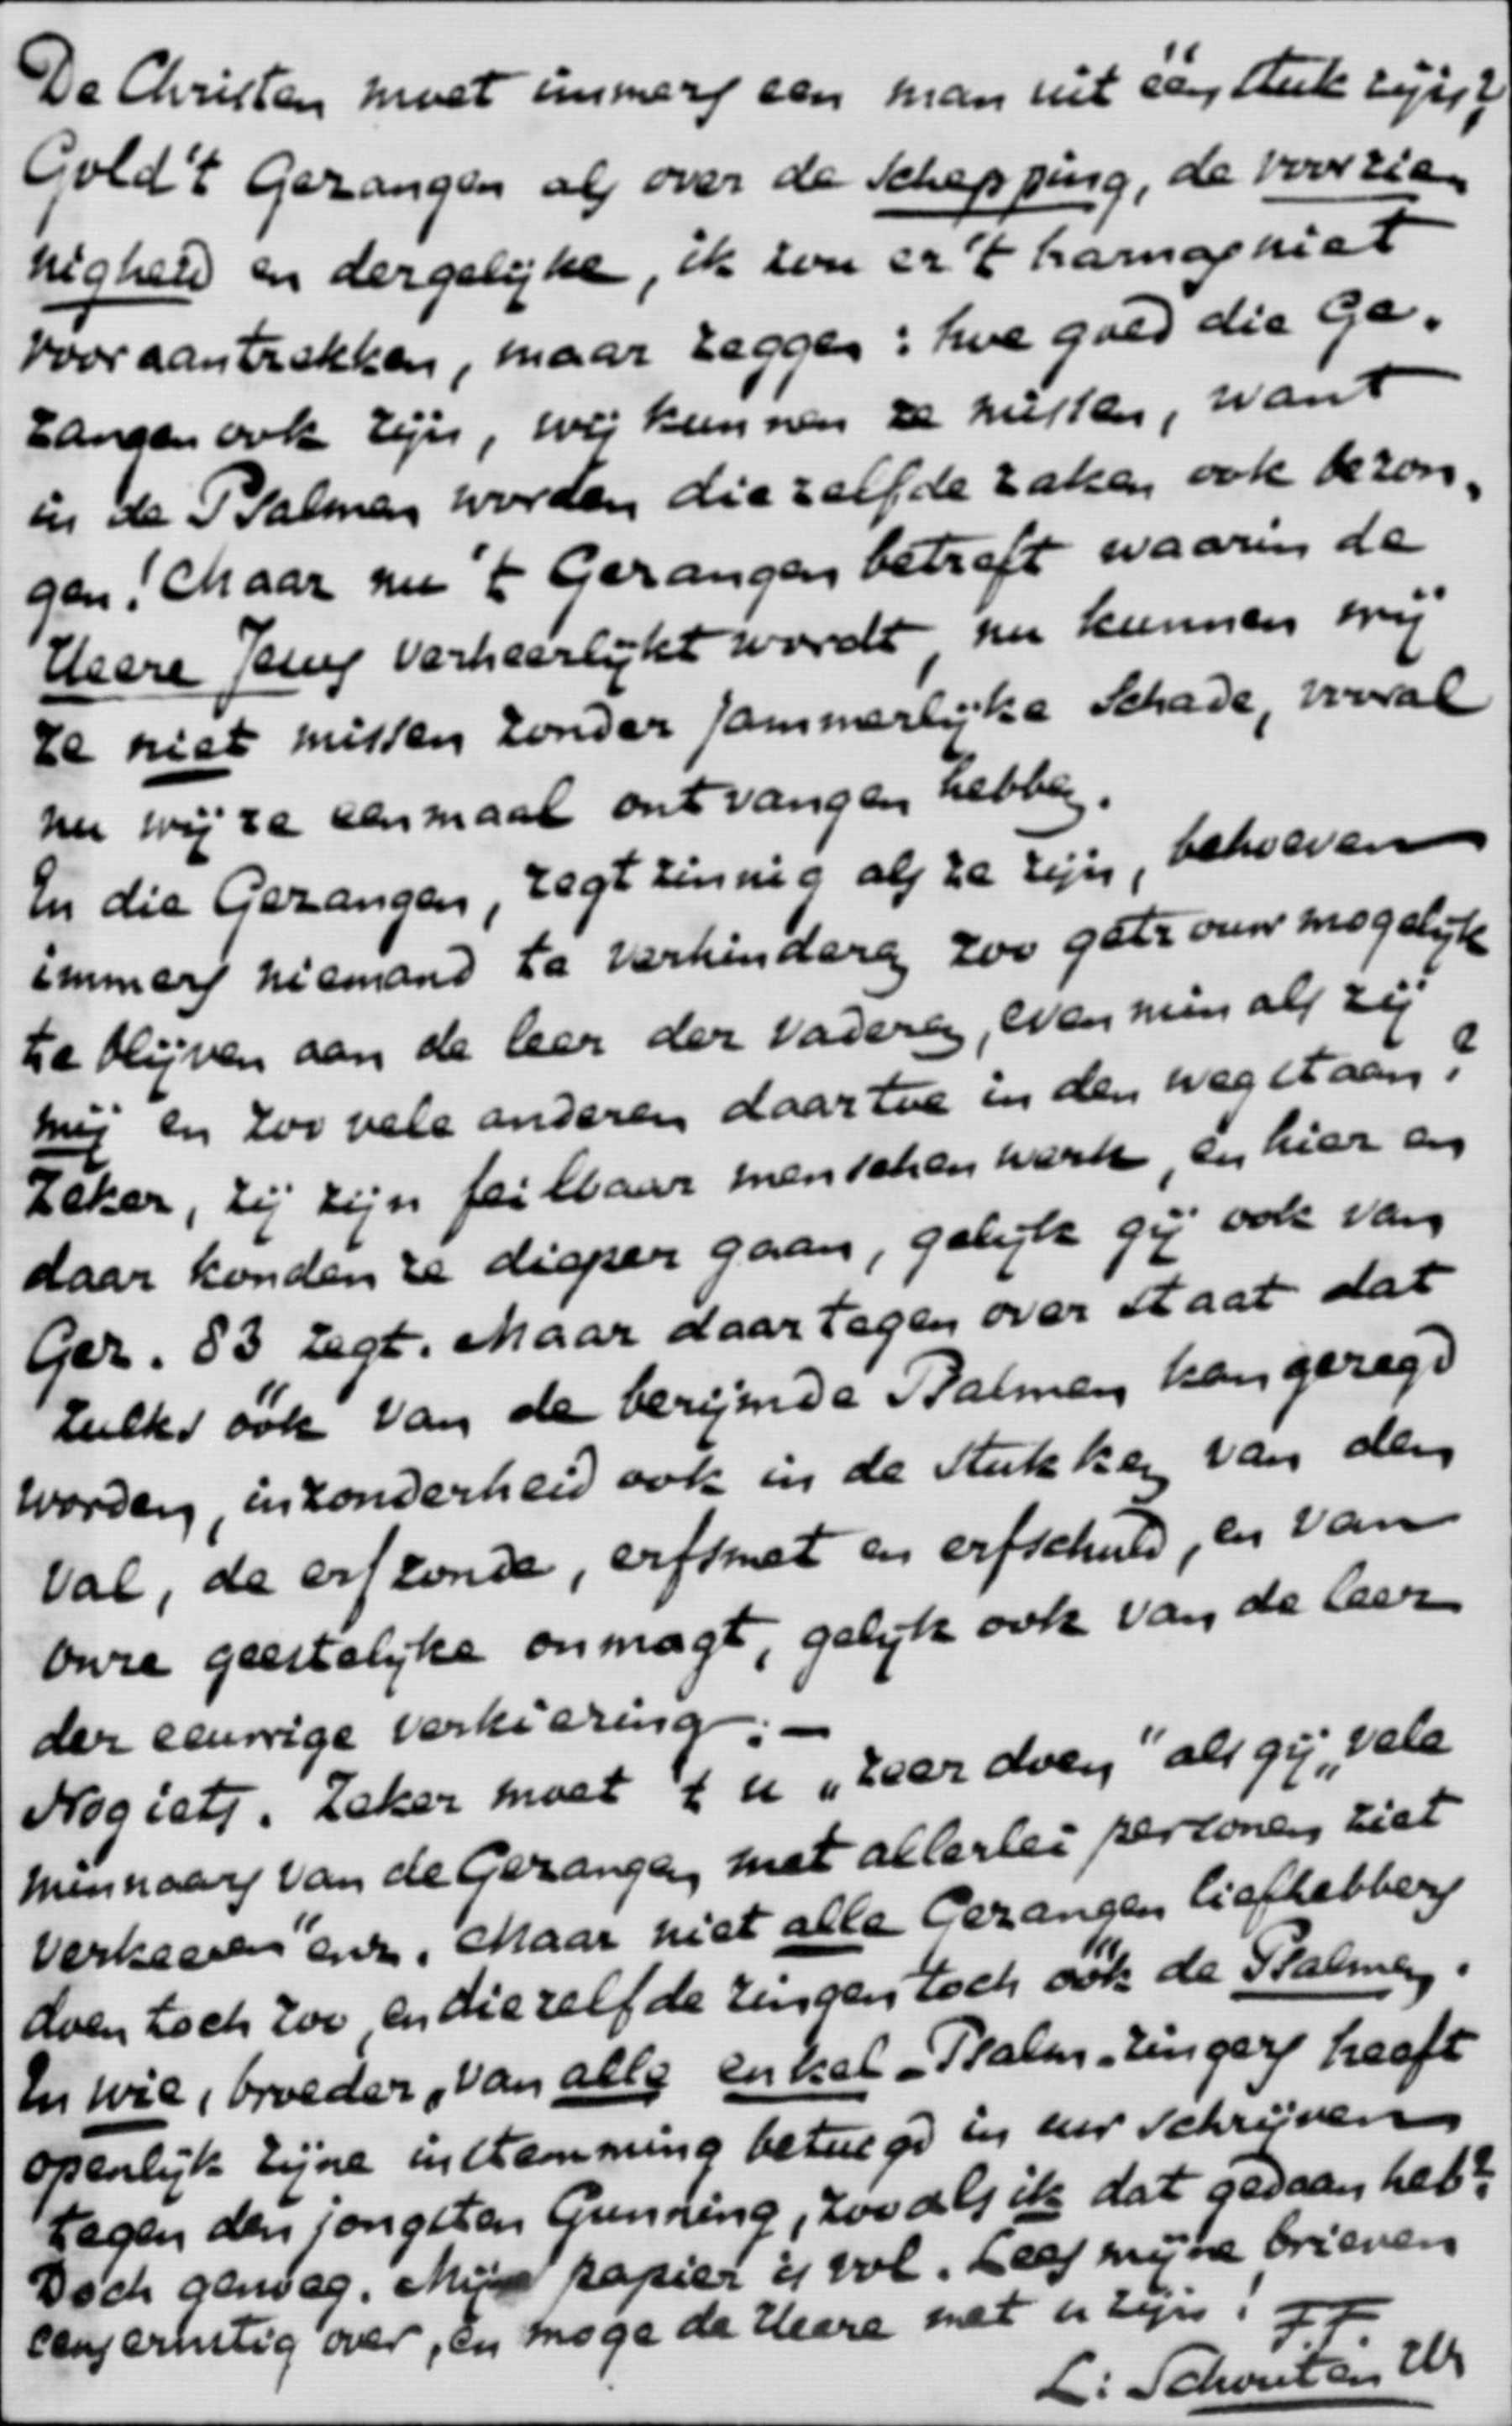 De Christen moet immers een man uit één stuk zijn?
Gold 't Gezangen als over de Schepping, de voorzie-
nigheid en dergelijke, ik zou er 't harnas niet
voor aantrekken, maar zeggen: hoe goed die Ge-
zangen ook zijn, wij kunnen ze missen, want
in de Psalmen worden diezelfde zaken ook bezon-
gen! Maar nu 't Gezangen betreft waarin de
Heere Jezus verheerlijkt wordt, nu kunnen wij
ze niet missen zonder jammerlijke schade, vooral
nu wij ze eenmaal ontvangen hebben.
En die Gezangen, regtzinnig als ze zijn, behoeven
immers niemand te verhinderen zoo getrouw mogelijk
te blijven aan de leer der vaderen, evenmin als zij
mij en zoo vele anderen daartoe in den weg staan?
Zeker, zij zijn feilbaar menschenwerk, en hier en
daar konden ze dieper gaan, gelijk gij ook van
Gez. 83 zegt. Maar daartegenover staat dat
zulks óók van de berijmde Psalmen kan gezegd
worden, inzonderheid ook in de stukken van den
val, de erfzonde, erfsmet en erfschuld, en van
onze geestelijke onmagt, gelijk ook van de leer
der eeuwige verkiezing. —
Nog iets. Zeker moet 't u „zeer doen" als gij „vele
minnaars van de Gezangen met allerlei personen ziet
verkeeren" enz. Maar niet alle Gezangen liefhebbers
doen toch zoo, en diezelfde zingen toch óók de Psalmen.
En wie, broeder, van alle enkel-Psalm-zingers heeft
openlijk zijne instemming betuigd in uw schrijven
tegen den jongsten Gunning, zooals ik dat gedaan heb?
Doch genoeg. Mijn papier is vol. Lees mijne brieven
eens ernstig over, en moge de Heere met u zijn! T.T.
L: Schouten Hz